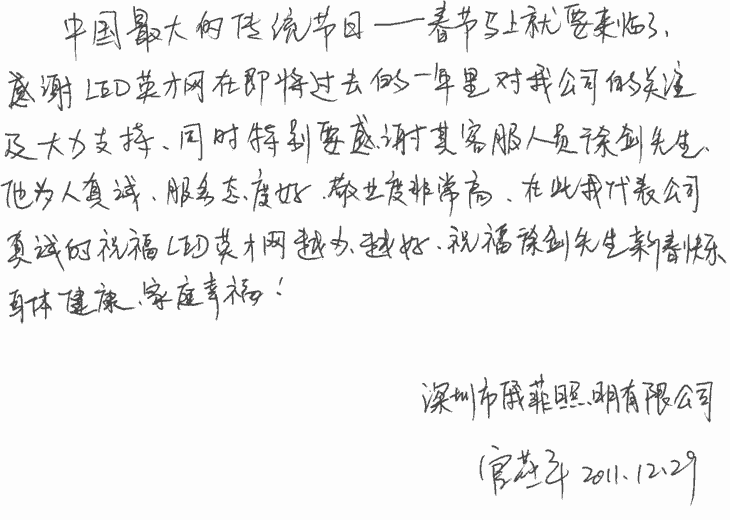 中国最大的传统节日——春节马上就要来临了、
感谢LED英才网在即将过去的一年里对我公司的关注
及大力支持、同时特别要感谢其客服人员徐剑先生、
他为人真诚、服务态度好、敬业度非常高、在此我代表公司
真诚的祝福LED英才网越办越好、祝福徐剑先生新春快乐
身体健康、家庭幸福！
深圳市 菲照明有限公司
2011.12.29